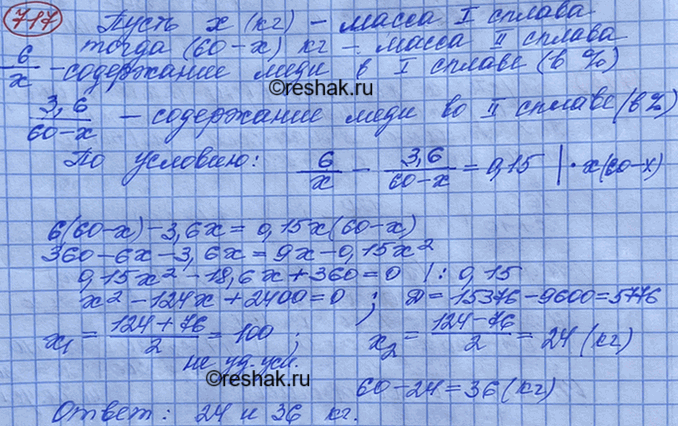 717 Пусть x (кг) – масса I сплава
тогда (60-x) кг – масса II сплава
6/x - содержание меди в I сплаве (в %)
©reshak.ru
3,6/(60-x) – содержание меди во II сплаве (в %)
По условию: 6/x - 3,6/(60-x) = 0,15 | · x(60-x)
6(60-x)-3,6x = 0,15x(60-x)
360-6x-3,6x = 9x-0,15x²
0,15x²-18,6x+360=0 | : 0,15
x²-124x+2400=0 ; D=15376-9600=5776
x₁ = (124+76)/2 = 100 ; x₂ = (124-76)/2 = 24 (кг)
не уд. усл.
©reshak.ru
60-24=36 (кг)
Ответ: 24 и 36 кг.